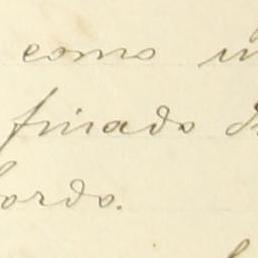 como
finado
bordo.